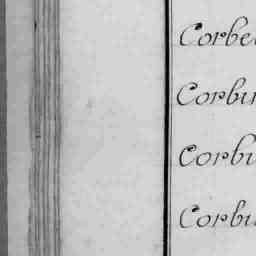 Corbe
Corbin
Corbi
Corbi